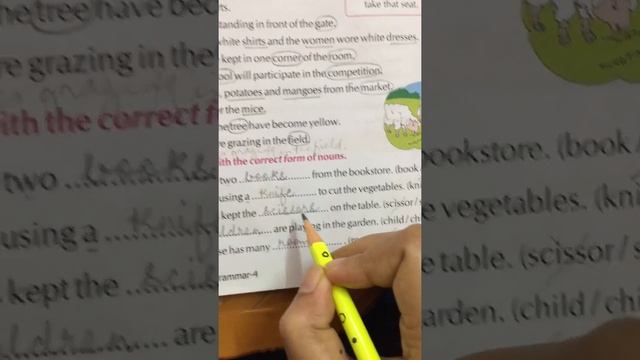 ts.
take that seat.
tanding in front of the gate.
white shirts and the women wore white dresses.
kept in one corner of the room.
ool will participate in the competition.
potatoes and mangoes from the market.
r the mice.
he tree have become yellow.
re grazing in the field.
ith the correct form of nouns.
two books from the bookstore. (book
using a knife to cut the vegetables. (kni
kept the scissors on the table. (scissor / s
ldren are playing in the garden. (child / ch
se has many
rammar-4
he tree have beco
re grazing in the
ith the correct f
two books
using a knife
kept the
ldren are
okstore. (book /
e vegetables. (kni
e table. (scissor /
arden. (child / ch